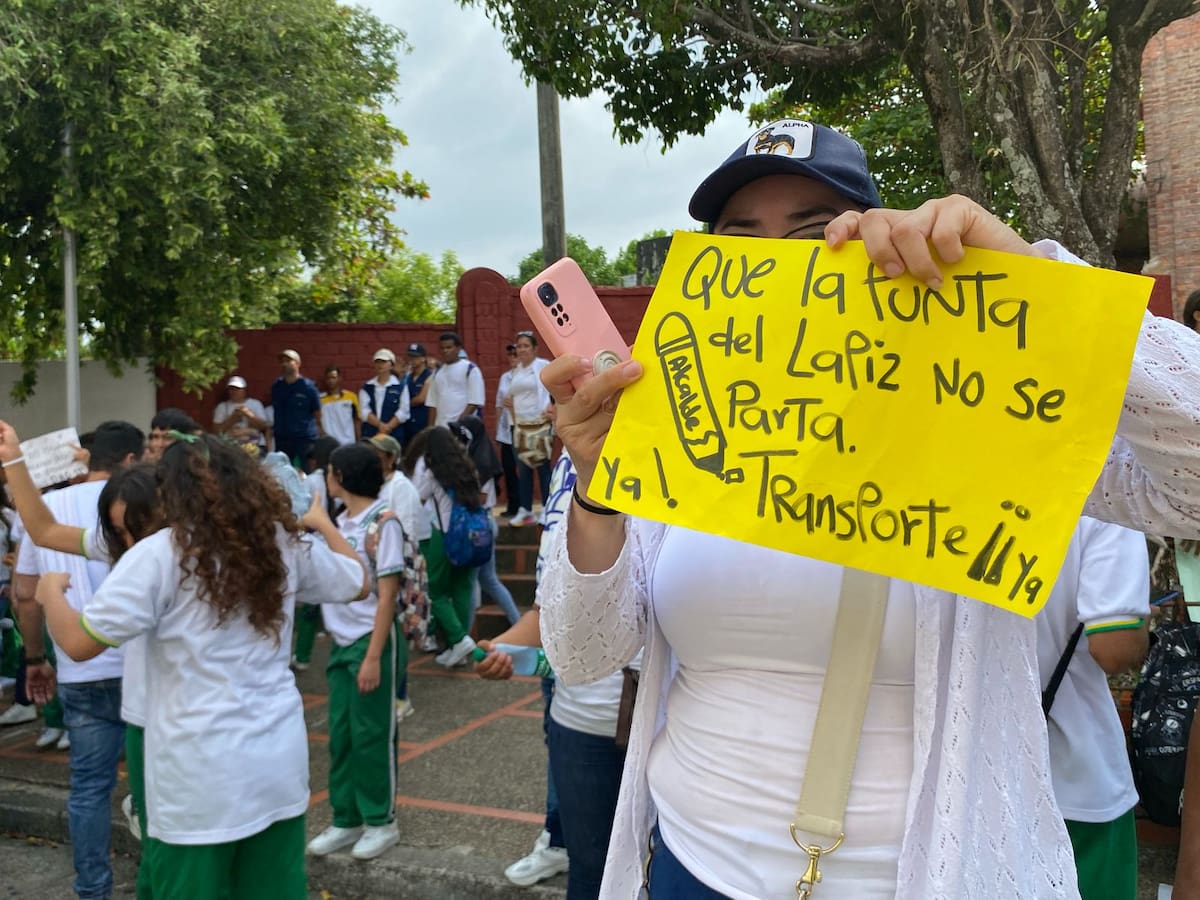 ALPHA
Que la PuNTa
del LaPiz No se
ParTa.
Alcalde S
Ya!
TransPorTe ¡¡ Ya